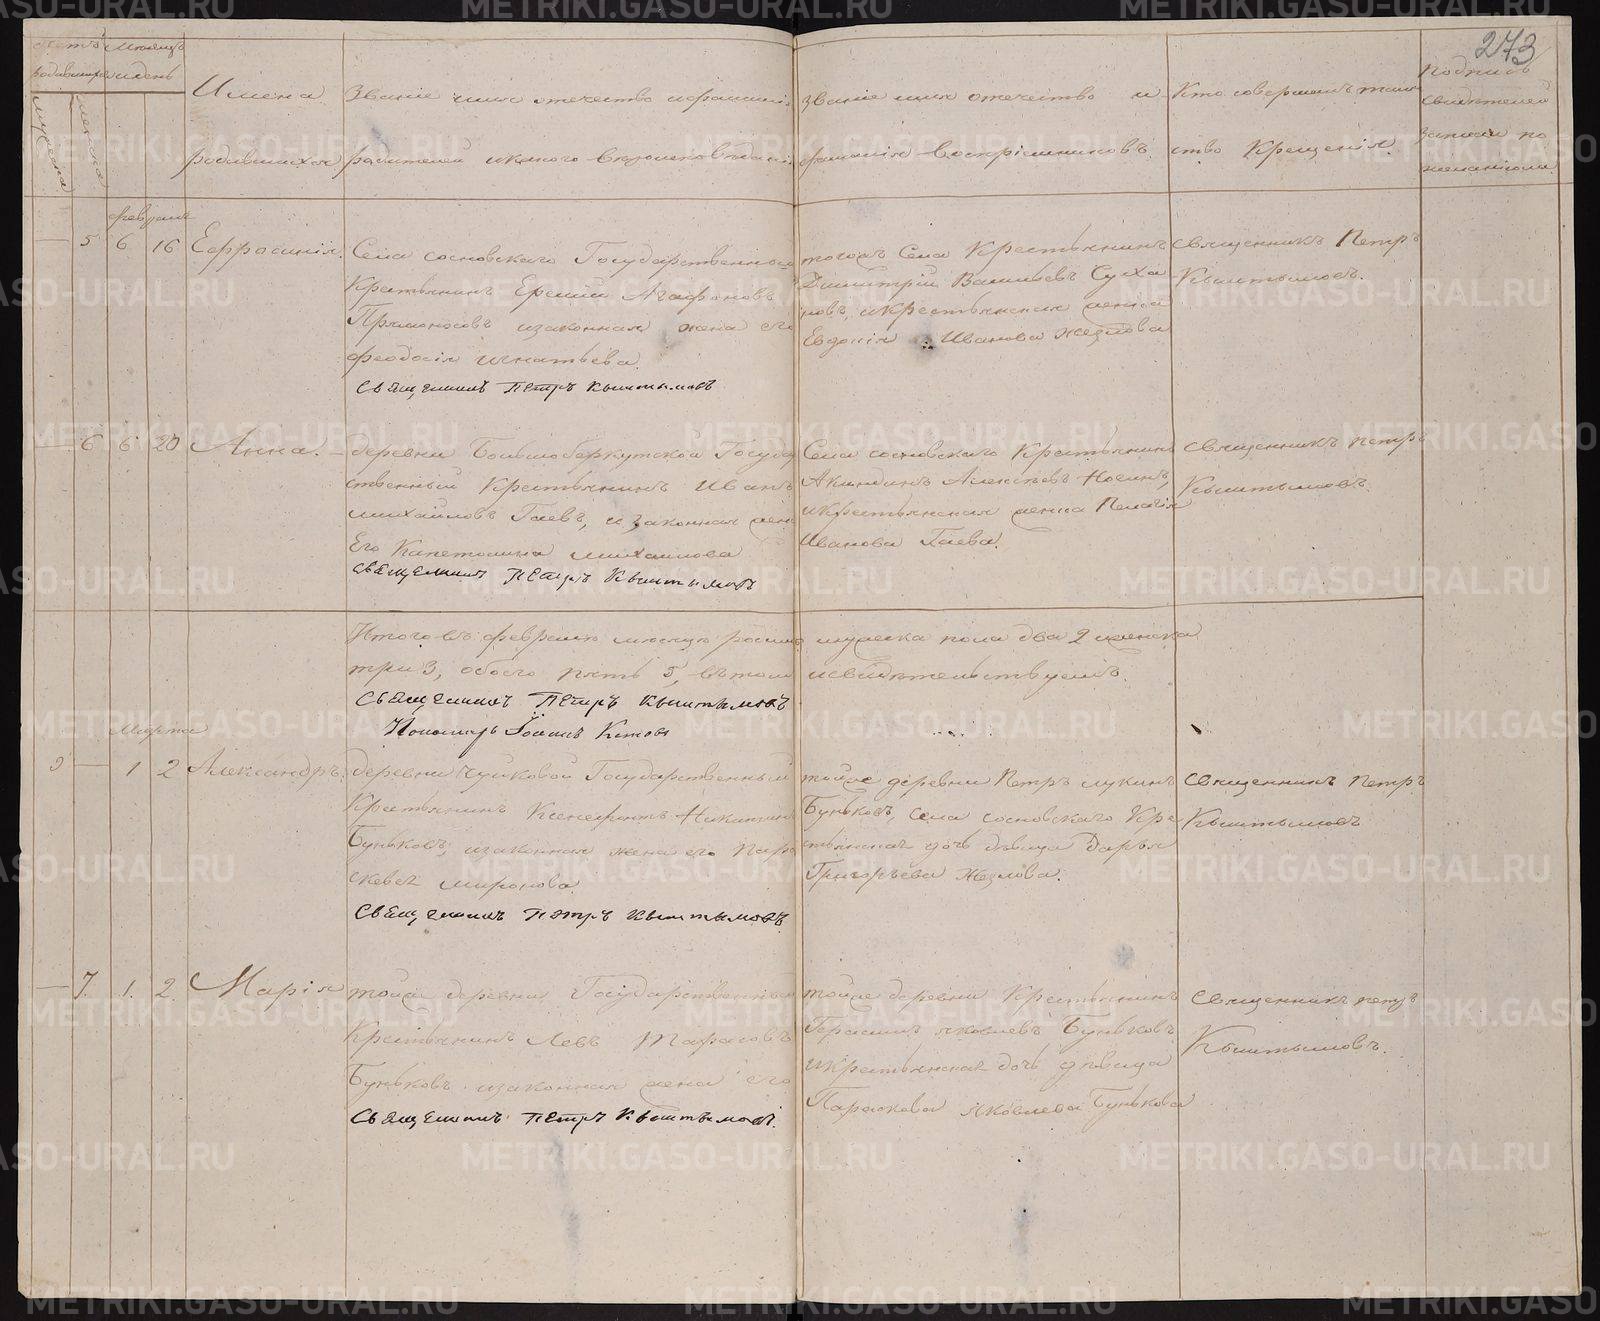 273
Счетъ родившихся
Мѣсяцъ и день
мужеска
женска
Имена родившихся
Званіе имя отечество и фамилія
родителей и какого вѣроисповѣданія
Званіе имя отечество и
фамилія воспріемниковъ.
Кто совершалъ таин-
ство Крещенія.
Подпись
свидѣтелей
записи по
желанію
февраль
5 6 16 Ефросинія.
Села сосновскаго Государственный
Крестьянинъ Ермій Агафоновъ
Прямоносовъ и законная жена его
феодосія игнатьева.
Священникъ Петръ Кыштымовъ
тогожъ Села Крестьянинъ
Димитрій Васильевъ Суха
новъ, и крестьянская женка
Евдокія Иванова Жезлова
священникъ Петръ
Кыштымовъ.
6 6 20 Анна.
деревни Большобаркутской Госуда
ственный Крестьянинъ Иванъ
михайловъ Гаевъ, и законная жена
Его Капетолина михаилова
священникъ Петръ Кыштымовъ
Села сосновскаго Крестьянинъ
Акиндинъ Алексѣевъ Носинъ,
и Крестьянская женка Пелагія
Иванова Гаева.
священникъ петръ
Кыштымовъ.
Итого въ февралѣ мѣсяцѣ родилось мужеска пола два 2 женска
три 3, обоего пять 5, въ томъ и свидѣтельствуемъ.
Священникъ Петръ Кыштымовъ
Пономарь Іоаннъ Китовъ
Марта
3 1 2 Александръ.
деревни Чупковой Государственный
Крестьянинъ Ксенофонтъ Никитинъ
Буньковъ, и законная жена его Пара
скева миронова.
Священникъ Петръ Кыштымовъ.
тойже деревни Петръ лукинъ
Буньковъ, села сосновскаго Кре
стьянская дочь дѣвица Дарья
Григорьева Жезлова.
священникъ Петръ
Кыштымовъ
7. 1. 2. Марія
тойже деревни Государственный
Крестьянинъ Левъ Тарасовъ
Буньковъ и законная жена его
Священникъ Петръ Кыштымовъ.
тойже деревни Крестьянинъ
Герасимъ яковлевъ Буньковъ
и крестьянская дочь дѣвица
Параскева яковлева Бунькова
священникъ петръ
Кыштымовъ.
METRIKI.GASO-URAL.RU